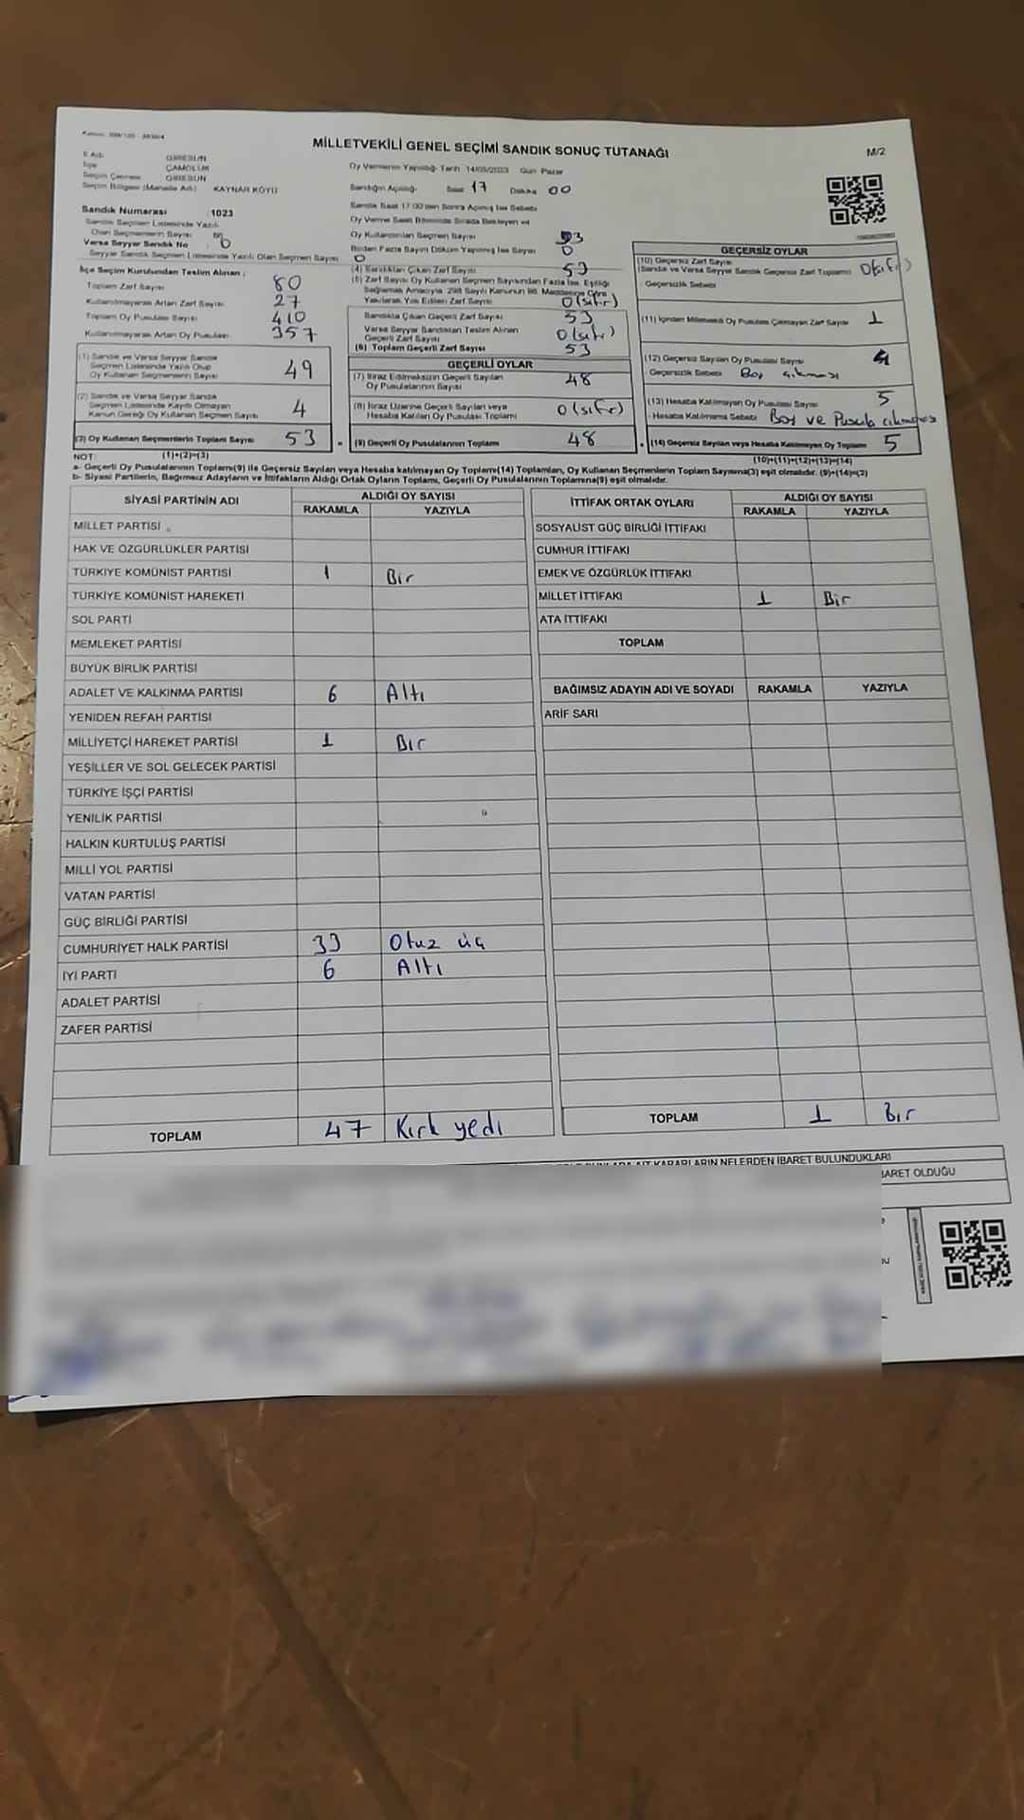 MİLLETVEKİLİ GENEL SEÇİMİ SANDIK SONUÇ TUTANAĞI
M/2
İl Adı GİRESUN
İlçe ÇAMOLUK
Seçim Çevresi GİRESUN
Seçim Bölgesi (Mahalle Adı) KAYNAR KÖYÜ
Oy Vermenin Yapıldığı Tarih 14/05/2023 Gün Pazar
Sandığın Açılışı Saat 17 Dakika 00
Sandık Saat 17:00'den Sonra Açılmış İse Sebebi
Sandık Numarası 1023
Sandık Seçmen Listesinde Yazılı
Olan Seçmenlerin Sayısı
Varsa Seyyar Sandık No
Seyyar Sandık Seçmen Listesinde Yazılı Olan Seçmen Sayısı 0
Oy Kullandırılan Seçmen Sayısı 53
Birden Fazla Sayım Döküm Yapılmış İse Sayısı 0
İlçe Seçim Kurulundan Teslim Alınan;
Toplam Zarf Sayısı 80
Kullanılmayarak Artan Zarf Sayısı 27
Toplam Oy Pusulası Sayısı 410
Kullanılmayarak Artan Oy Pusulası 357
(1) Sandık ve Varsa Seyyar Sandık
Seçmen Listesinde Yazılı Olup
Oy Kullanan Seçmenlerin Sayısı 49
(2) Sandık ve Varsa Seyyar Sandık
Seçmen Listesinde Kayıtlı Olmayan
Kanun Gereği Oy Kullanan Seçmen Sayısı 4
(3) Oy Kullanan Seçmenlerin Toplam Sayısı 53
(4) Sandıktan Çıkan Zarf Sayısı 53
(5) Zarf Sayısı Oy Kullanan Seçmen Sayısından Fazla İse, Eşitliği
Sağlamak Amacıyla 298 Sayılı Kanunun 98. Maddesine Göre
Yakılarak Yok Edilen Zarf Sayısı 0 (sıfır)
Sandıkta Çıkan Geçerli Zarf Sayısı 53
Varsa Seyyar Sandıktan Teslim Alınan
Geçerli Zarf Sayısı 0 (sıfır)
(6) Toplam Geçerli Zarf Sayısı 53
GEÇERLİ OYLAR
(7) İtiraz Edilmeksizin Geçerli Sayılan
Oy Pusulalarının Sayısı 48
(8) İtiraz Üzerine Geçerli Sayılan veya
Hesaba Katılan Oy Pusulası Toplamı 0 (sıfır)
(9) Geçerli Oy Pusulalarının Toplamı 48
GEÇERSİZ OYLAR
(10) Geçersiz Zarf Sayısı
(Sandık ve Varsa Seyyar Sandık Geçersiz Zarf Toplamı) 0 (sıfır)
Geçersizlik Sebebi
(11) İçinden Milletvekili Oy Pusulası Çıkmayan Zarf Sayısı 1
(12) Geçersiz Sayılan Oy Pusulası Sayısı 4
Geçersizlik Sebebi Boş çıkması
(13) Hesaba Katılmayan Oy Pusulası Sayısı 5
Hesaba Katılmama Sebebi Boş ve Pusula çıkmaması
(14) Geçersiz Sayılan veya Hesaba Katılmayan Oy Toplamı 5
NOT: (1)+(2)=(3)
(10)+(11)+(12)+(13)=(14)
a- Geçerli Oy Pusulasının Toplamı(9) ile Geçersiz Sayılan veya Hesaba katılmayan Oy Toplamı(14) Toplamları, Oy Kullanan Seçmenlerin Toplam Sayısına(3) eşit olmalıdır. (9)+(14)=(3)
b- Siyasi Partilerin, Bağımsız Adayların ve İttifakların Aldığı Ortak Oyların Toplamı, Geçerli Oy Pusulalarının Toplamına(9) eşit olmalıdır.
SİYASİ PARTİNİN ADI
ALDIĞI OY SAYISI
RAKAMLA YAZIYLA
MİLLET PARTİSİ
HAK VE ÖZGÜRLÜKLER PARTİSİ
TÜRKİYE KOMÜNİST PARTİSİ 1 Bir
TÜRKİYE KOMÜNİST HAREKETİ
SOL PARTİ
MEMLEKET PARTİSİ
BÜYÜK BİRLİK PARTİSİ
ADALET VE KALKINMA PARTİSİ 6 Altı
YENİDEN REFAH PARTİSİ
MİLLİYETÇİ HAREKET PARTİSİ 1 Bır
YEŞİLLER VE SOL GELECEK PARTİSİ
TÜRKİYE İŞÇİ PARTİSİ
YENİLİK PARTİSİ
HALKIN KURTULUŞ PARTİSİ
MİLLİ YOL PARTİSİ
VATAN PARTİSİ
GÜÇ BİRLİĞİ PARTİSİ
CUMHURİYET HALK PARTİSİ 33 Otuz üç
İYİ PARTİ 6 Altı
ADALET PARTİSİ
ZAFER PARTİSİ
TOPLAM 47 Kırk yedi
İTTİFAK ORTAK OYLARI
ALDIĞI OY SAYISI
RAKAMLA YAZIYLA
SOSYALİST GÜÇ BİRLİĞİ İTTİFAKI
CUMHUR İTTİFAKI
EMEK VE ÖZGÜRLÜK İTTİFAKI
MİLLET İTTİFAKI 1 Bir
ATA İTTİFAKI
TOPLAM
BAĞIMSIZ ADAYIN ADI VE SOYADI RAKAMLA YAZIYLA
ARİF SARI
TOPLAM 1 Bır
KARARLARIN NELERDEN İBARET BULUNDUKLARI
OLDUĞU